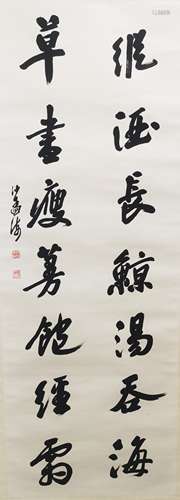 縱酒長鯨渴吞海
草書瘦蔓飽經霜
沙孟海